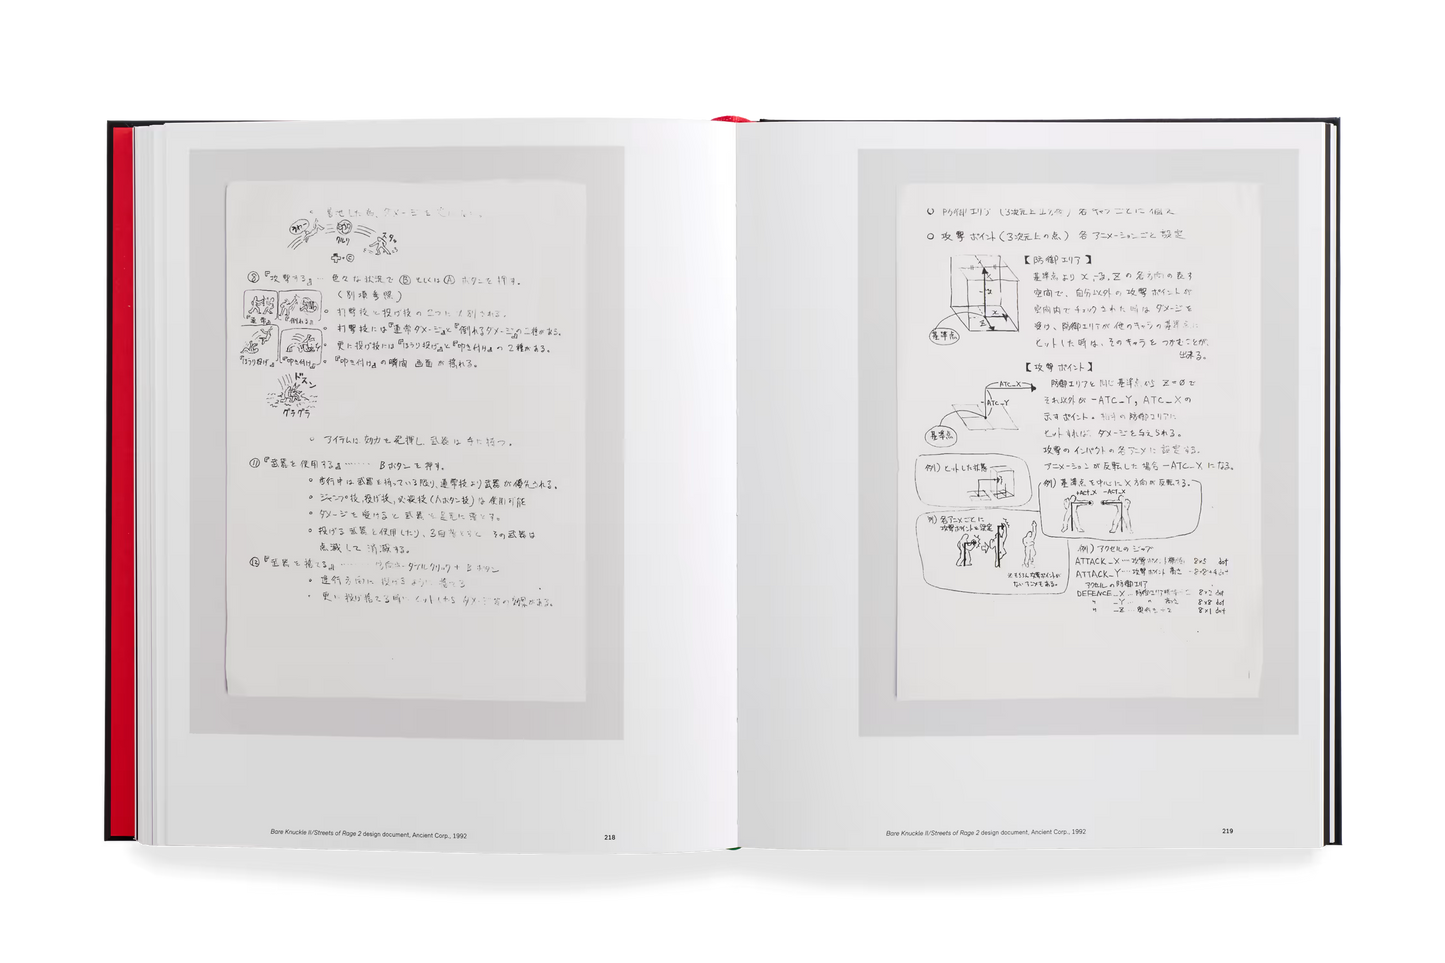 ダメージを
クルリ
スタッ
+C
⑧『攻撃する』… 色々な状況で Ⓑ もしくは Ⓐ ボタンを押す。
(別項参照)
『通常』
『倒れる』
『ほうり投げ』
『叩き付け』
。打撃技と投げ技の二つに大別される。
。打撃技には『通常ダメージ』と『倒れるダメージ』の二種がある。
。更に投げ技には『ほうり投げ』と『叩き付け』の2種がある。
。『叩き付け』の瞬間 画面が揺れる。
ドスン
グラグラ
。アイテムに効力を発揮し、武器は手に持つ。
⑪『武器を使用する』…… Bボタンを押す。
。歩行中は武器を持っている限り、通常技より武器が優先される。
。ジャンプ技、投げ技、必殺技(Aボタン技)は使用可能
。ダメージを受けると武器を足元に落とす。
。投げる武器を使用したり、3回落とすと その武器は
点滅して 消滅する。
⑫『武器を捨てる』…… ダブルクリック + Bボタン
。進行方向に投げるように捨てる
。更に投げ捨てる時にヒットする ダメージ等の効果がある。
Bare Knuckle II/Streets of Rage 2 design document, Ancient Corp., 1992
218
○ 防御エリア (3次元上 各キャラごとに
○ 攻撃ポイント(3次元上の点) 各アニメーションごと 設定
【防御エリア】
基準点より X, Y, Z の各方向の表す
空間で、自分以外の攻撃ポイントが
空間内でチェックされた時はダメージを
受け、防御エリアが他のキャラの基準点に
ヒットした時は、そのキャラをつかむことが、
出来る。
X
Y
Z
基準点
【攻撃ポイント】
防御エリアと同じ基準点から Z=0で
それ以外が -ATC_Y, ATC_X の
示すポイント。相手の防御エリアに
ヒットすれば、ダメージを与えられる。
攻撃のインパクトの各アニメに設定する。
アニメーションが反転した場合 -ATC_X になる。
ATC_X
-ATC_Y
基準点
例1) ヒットした状態
例) 基準点を中心にX方向が反転する。
+ACT_X
-ACT_X
例) 各アニメごとに
攻撃ポイントを設定
※もちろん攻撃ポイントが
ないアニメもある。
例) アクセルのジャブ
ATTACK_X … 8×5 dot
ATTACK_Y … 攻撃ポイント高さ -8×8+4 dot
アクセルの防御エリア
DEFENCE_X … 防御エリア 8×2 dot
〃 _Y … 〃 高さ 8×8 dot
〃 _Z … 奥行き 8×1 dot
Bare Knuckle II/Streets of Rage 2 design document, Ancient Corp., 1992
219